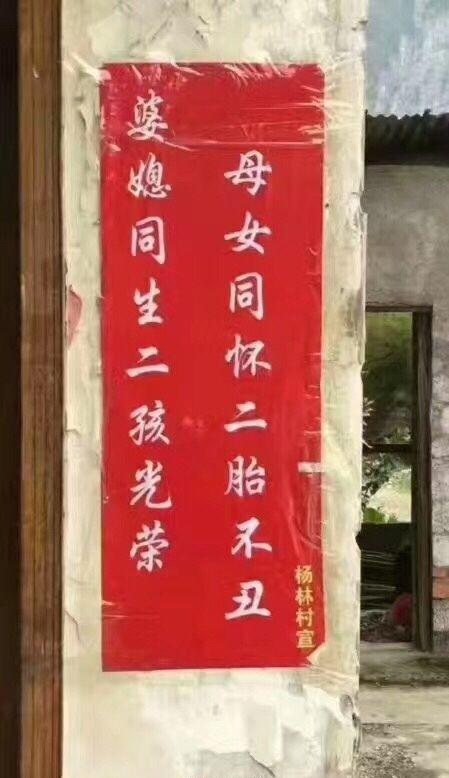 母女同怀二胎不丑
婆媳同生二孩光荣
杨林村宣